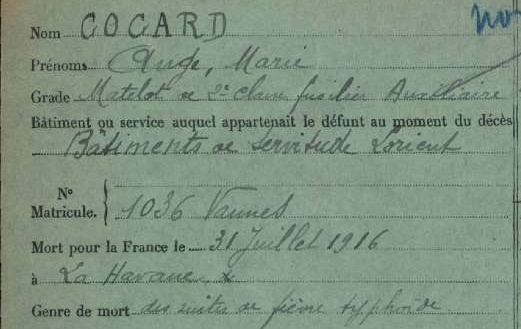 Nom COCARD no
Prénoms Ange, Marie
Grade Matelot de 2e classe fusilier Auxiliaire
Bâtiment ou service auquel appartenait le défunt au moment du décès
Bâtiments de servitude Lorient
N°
Matricule. 1036 Vannes
Mort pour la France le 31 Juillet 1916
à La Havane
Genre de mort des suites de fièvre typhoïde